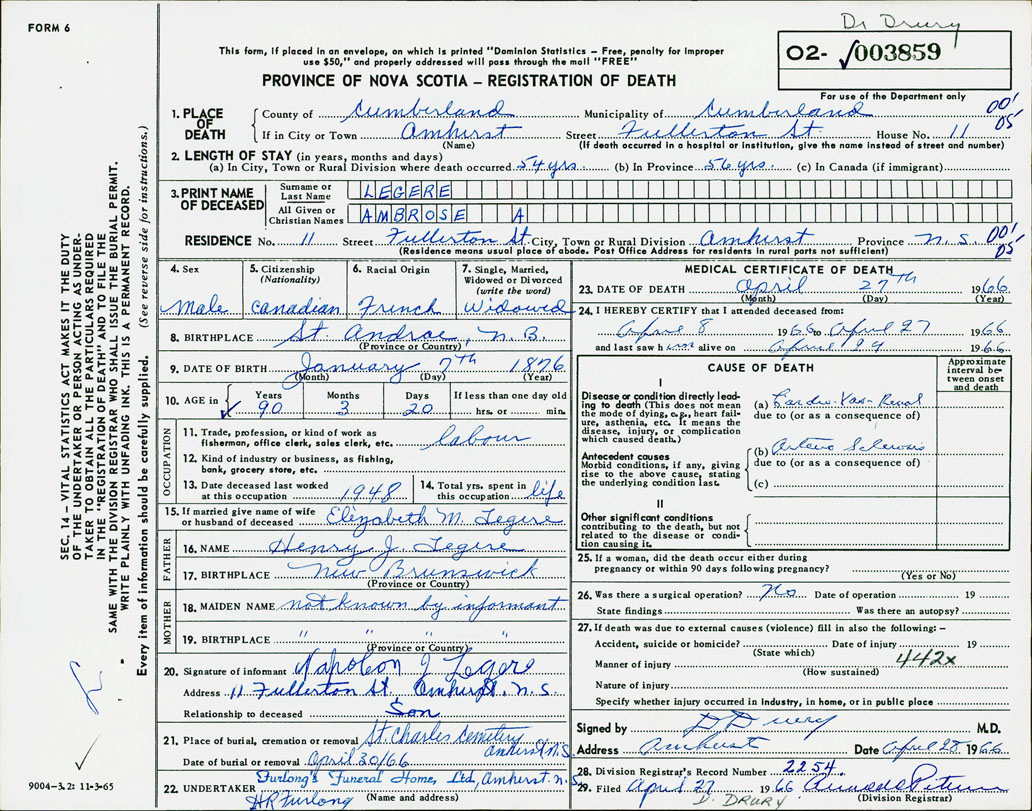 Dr Drury
FORM 6
O2- √003859
This form, if placed in an envelope, on which is printed "Dominion Statistics – Free, penalty for improper
use $50," and properly addressed will pass through the mail "FREE"
PROVINCE OF NOVA SCOTIA – REGISTRATION OF DEATH
For use of the Department only
1. PLACE OF DEATH County of Cumberland Municipality of Cumberland 00'
If in City or Town Amhurst Street Fullerton St. House No. 11 05'
(Name) (If death occurred in a hospital or institution, give the name instead of street and number)
2. LENGTH OF STAY (in years, months and days)
(a) In City, Town or Rural Division where death occurred 54 yrs. (b) In Province 56 yrs. (c) In Canada (if immigrant)
3. PRINT NAME OF DECEASED Surname or Last Name LEGERE
All Given or Christian Names AMBROSE A
RESIDENCE No. 11 Street Fullerton St. City, Town or Rural Division Amhurst Province N.S. 00'
(Residence means usual place of abode. Post Office Address for residents in rural parts not sufficient) 05'
4. Sex 5. Citizenship (Nationality) 6. Racial Origin 7. Single, Married, Widowed or Divorced (write the word)
Male Canadian French Widowed
8. BIRTHPLACE St. Andree, N.B.
(Province or Country)
9. DATE OF BIRTH January 7th 1876
(Month) (Day) (Year)
10. AGE in √ Years Months Days If less than one day old
90 3 20 hrs. or min.
OCCUPATION
11. Trade, profession, or kind of work as
fisherman, office clerk, sales clerk, etc. labour
12. Kind of industry or business, as fishing,
bank, grocery store, etc.
13. Date deceased last worked at this occupation 1948 14. Total yrs. spent in this occupation life
15. If married give name of wife or husband of deceased Elizabeth M. Legere
FATHER
16. NAME Henry J. Legere
17. BIRTHPLACE New Brunswick
(Province or Country)
MOTHER
18. MAIDEN NAME not known by informant
19. BIRTHPLACE " " " "
(Province or Country)
20. Signature of informant Napoleon J Legere
Address 11 Fullerton St. Amhurst, N.S.
Relationship to deceased Son
21. Place of burial, cremation or removal St Charles Cemetery Amhurst N.S
Date of burial or removal April 30/66
22. UNDERTAKER Furlong's Funeral Home, Ltd, Amhurst. N.S
HR Furlong (Name and address)
MEDICAL CERTIFICATE OF DEATH
23. DATE OF DEATH April 27th 1966
(Month) (Day) (Year)
24. I HEREBY CERTIFY that I attended deceased from:
April 8 1966 to April 27 1966
and last saw h im alive on April 1966
CAUSE OF DEATH
Approximate interval between onset and death
I
Disease or condition directly leading to death (This does not mean the mode of dying, e.g., heart failure, asthenia, etc. It means the disease, injury, or complication which caused death.)
(a) Cardio-Vas-Renal
due to (or as a consequence of)
Antecedent causes
Morbid conditions, if any, giving rise to the above cause, stating the underlying condition last.
(b) Arterio Sclerosis
due to (or as a consequence of)
(c)
II
Other significant conditions
contributing to the death, but not related to the disease or condition causing it.
25. If a woman, did the death occur either during
pregnancy or within 90 days following pregnancy?
(Yes or No)
26. Was there a surgical operation? No Date of operation 19
State findings Was there an autopsy?
27. If death was due to external causes (violence) fill in also the following: –
Accident, suicide or homicide? Date of injury 19
(State which)
Manner of injury 442x
(How sustained)
Nature of injury
Specify whether injury occurred in Industry, in home, or in public place
Signed by D Drury M.D.
Address Amhurst Date April 28 1966
28. Division Registrar's Record Number 2254
29. Filed April 27 1966
D. DRURY (Division Registrar)
SEC. 14 – VITAL STATISTICS ACT MAKES IT THE DUTY
OF THE UNDERTAKER OR PERSON ACTING AS UNDER-
TAKER TO OBTAIN ALL THE PARTICULARS REQUIRED
IN THE "REGISTRATION OF DEATH" AND TO FILE THE
SAME WITH THE DIVISION REGISTRAR WHO SHALL ISSUE THE BURIAL PERMIT.
WRITE PLAINLY WITH UNFADING INK. THIS IS A PERMANENT RECORD.
Every item of information should be carefully supplied. (See reverse side for instructions.)
9004-3.2: 11-3-65